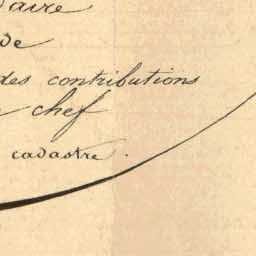 de
des contributions
chef
cadastre.